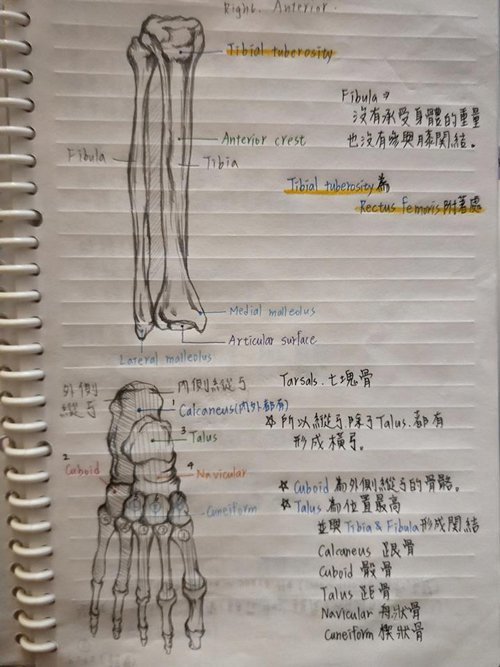 Right. Anterior.
Tibial tuberosity
Fibula →
沒有承受身體的重量
也沒有參與膝關結。
Anterior crest
Fibula
Tibia
Tibial tuberosity 為
Rectus femoris 附著處
Medial malleolus
Articular surface
Lateral malleolus
外側
縱弓
內側縱弓
Tarsals. 七塊骨
1
Calcaneus(內外都有)
☆ 所以縱弓除了Talus. 都有
形成橫弓。
3
Talus
2
Cuboid
4
Navicular
☆ Cuboid 為外側縱弓的骨骼。
☆ Talus 為位置最高
並與 Tibia & Fibula 形成關結
Cuneiform
Calcaneus 跟骨
Cuboid 骰骨
Talus 距骨
Navicular 舟狀骨
Cuneiform 楔狀骨